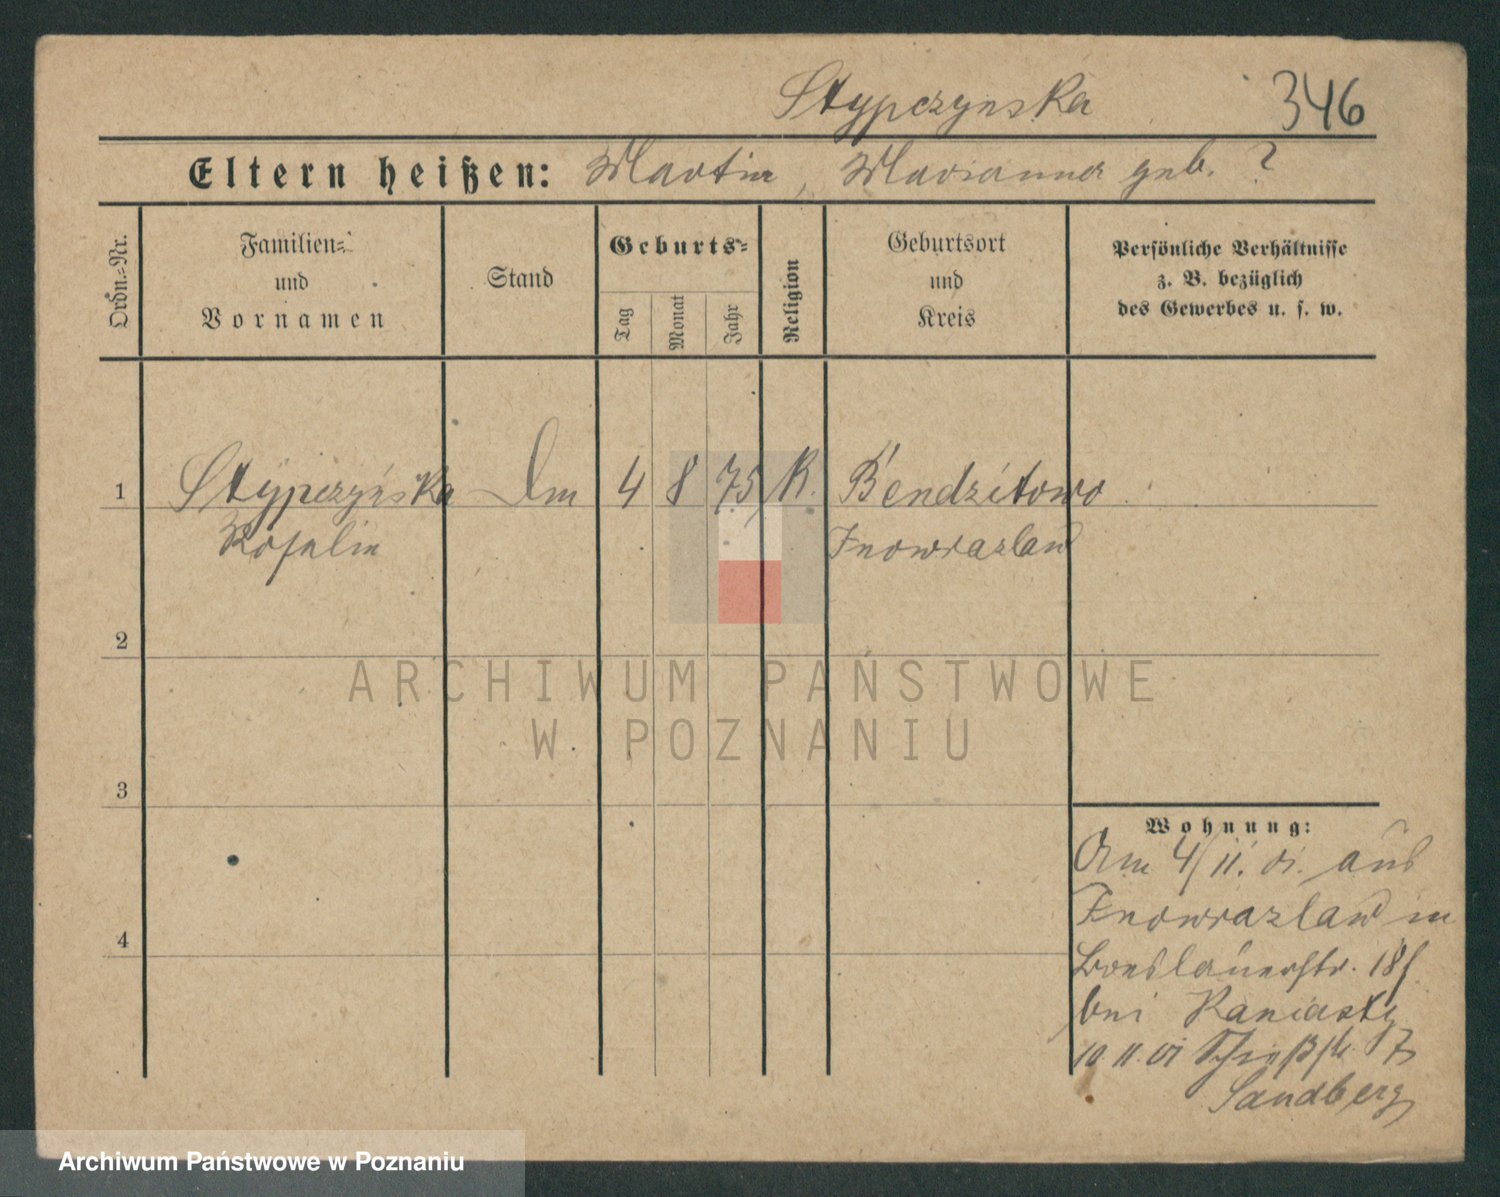 Stypczynska 346
Eltern heißen: Martin, Marianna geb. ?
Ordn.=Nr.
Familien=
und
Vornamen
Stand
Geburts=
Tag
Monat
Jahr
Religion
Geburtsort
und
Kreis
Persönliche Verhältnisse
z. B. bezüglich
des Gewerbes u. s. w.
1 Stypczyńska 4 8 75 K. Bendzitowo
Rosalie Inowrazlaw
2
ARCHIWUM PAŃSTWOWE
W POZNANIU
3
Wohnung:
Am 4/11. 01. aus
Inowrazlaw in
Breslauerstr. 18
bei Raniasty
10.11.01 Schießstr. 7
Sandberg
4
Archiwum Państwowe w Poznaniu